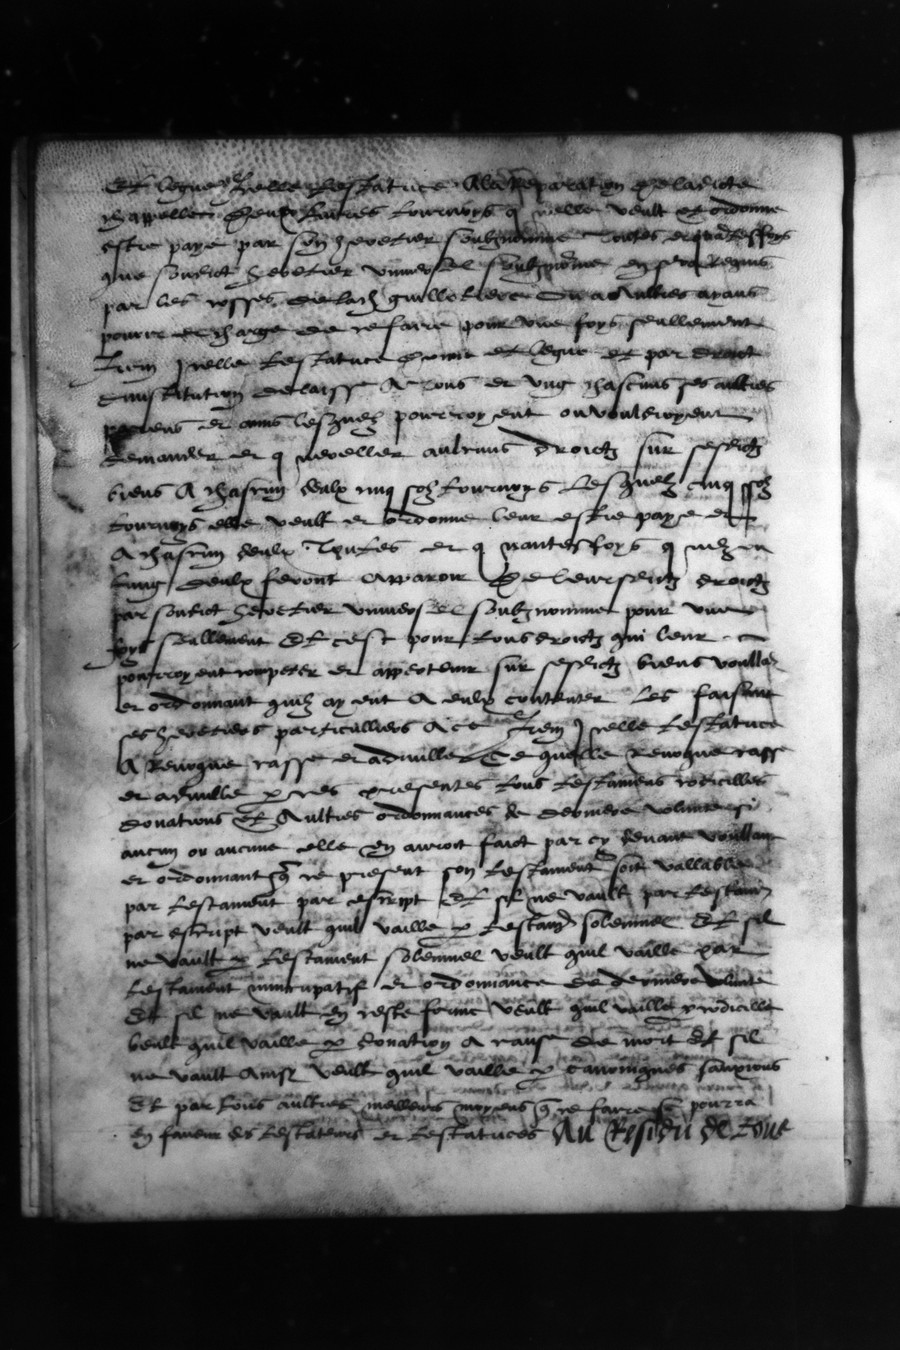 Et legue icelle testatrice A la reparation de ladicte
chappelle deux livres tournoys q icelle veult et ordonne
estre paye par son heretier soubznomme toutes et quantesfoys
que sondict heretier universel soubznomme en sera Requis
par les
pouvoir et charge de ce faire pour une foys seullement
Item icelle testatrice donne et legue et par droict
dinstitution delaisse A tous et ung chascuns ses aultres
parens et amis lesquelz pourroyent ou vouldroyent
demander et q ureller aulcuns droictz sur sesdictz
biens A chascun deulx cinq solz tournoys Lesquelz cinq solz
tournoys elle veult et ordonne leur estre paye et
A chascun deulx Toutes et q uantesfoys q
lung deulx feront Apparoir De leursdictz droictz
par sondict heretier universel soubznomme pour une
foys seullement Et cest pour tous droictz qui leur
pourroyent competer et appertenir sur sesdictz biens voullant
et ordonnant quilz ayent A eulx contenter les faisant
ses heretiers particulliers A ce Item icelle testatrice
A Revoque casse et adnulle Et quelle Revoque casse
et adnulle p ces presentes tous testamens codicilles
donations Et Aultres ordonnances de derniere volunte si
aucun ou aucune elle en avoit faict par cy devant voullant
et ordonnant q ce present son testament soit vallable
par testament par escript Et sil ne vault par testam
par escript veult quil vaille p testam solemnel Et sil
ne vault p testament solemnel veult quil vaille par
testament nuncupatif et ordonnance de derniere volunte
Et sil ne vault en ceste forme veult quil vaille p codicille
veult quil vaille p donation A cause de mort Et sil
ne vault Ainsi veult quil vaille p canoniques sanxions
Et par tous aultres meilleurs moyens q ce faire se pourra
en faveur des testateurs et testatrices Au Residu de tous